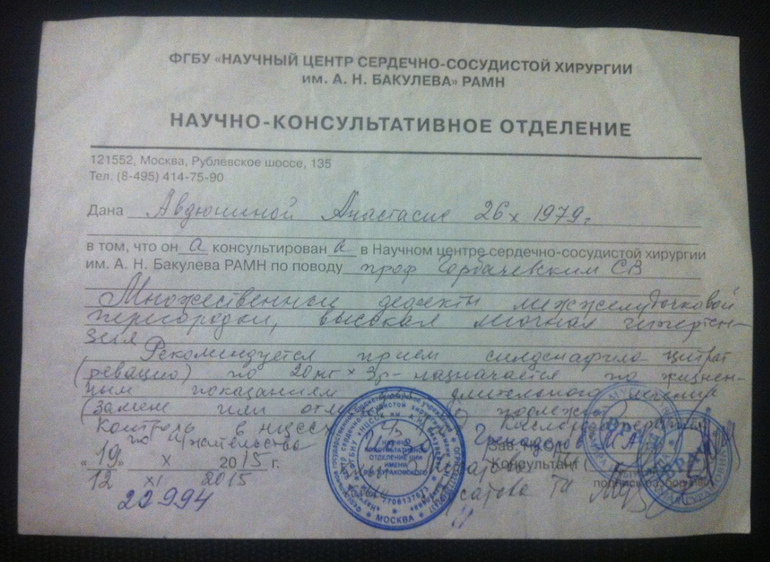 ФГБУ «НАУЧНЫЙ ЦЕНТР СЕРДЕЧНО-СОСУДИСТОЙ ХИРУРГИИ
им. А. Н. БАКУЛЕВА» РАМН
НАУЧНО-КОНСУЛЬТАТИВНОЕ ОТДЕЛЕНИЕ
121552, Москва, Рублевское шоссе, 135
Тел. (8-495) 414-75-90
Дана Авдюниной Анастасие 26 X 1979г.
в том, что он а консультирован а в Научном центре сердечно-сосудистой хирургии
им. А. Н. Бакулева РАМН по поводу проф Горбачевским СВ
Множественные дефекты межжелудочковой
перегородки, высокая легочная гипертен-
зия
Рекомендуется прием силденафила цитрат
(ревацио) по 20 мг х 3р - назначается по жизнен-
ным показаниям длительного лечения
(замене или не подлежит)
Контроль в НЦССХ
по м/жительства
Зав. НКО
Консультант
«19» X 2015 г.
12 XI 2015
22994
МОСКВА
ВРАЧ